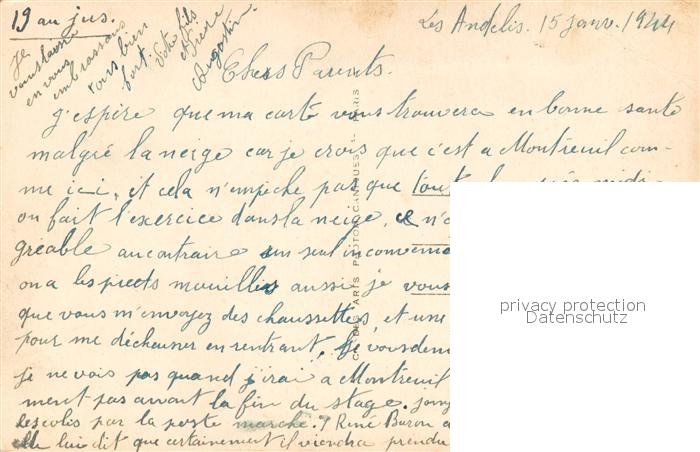 19 au jus.
Les Andelis. 15 janv. 1944
je
vous laisse
en vous
embrassant
tous bien
fort.
Votre fils
Augustin.
Chers Parents.
j'espère que ma carte vous trouvera en bonne santé
malgré la neige car je crois que c'est a Montreuil com-
me ici, et cela n'empêche pas que tout
on fait l'exercice dans la neige, ce n'
gréable au contraire un seul inconvenie
on a les pieds mouillés aussi je vous
que vous m'envoyez des chaussettes, et une
pour me déchausser en rentrant, je vous dem
je ne vois pas quand j'irai a Montreuil
ment pas avant la fin du stage.
les colis par la poste marche? René Baron a
elle lui dit que certainement il viendra prendre
PHOTO
PARIS
privacy protection
Datenschutz